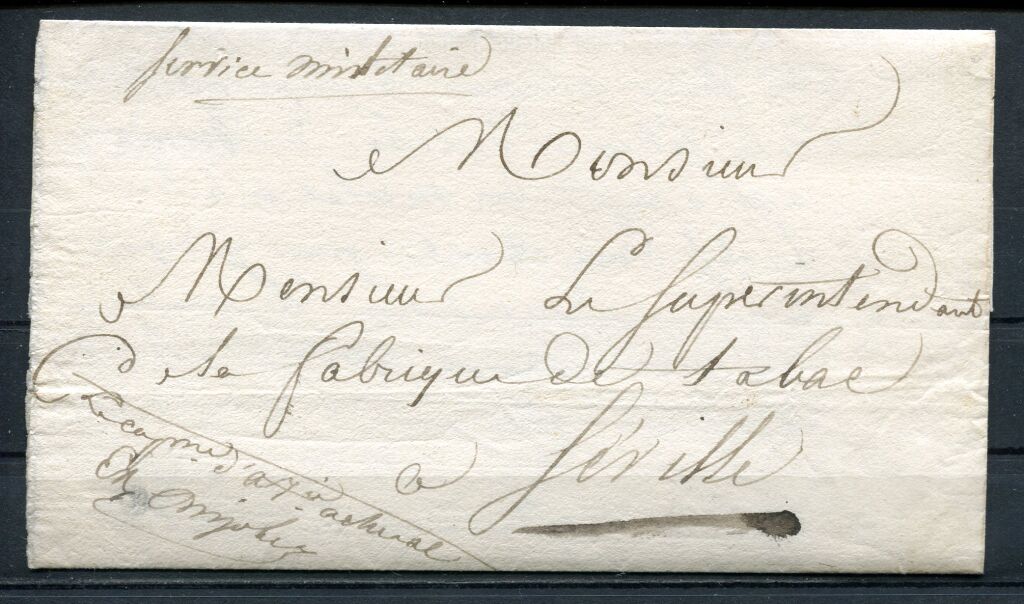 Service militaire
Monsieur
Monsieur Le Superintendant
de la fabrique de tabac
a Séville
Le capne. d'artie